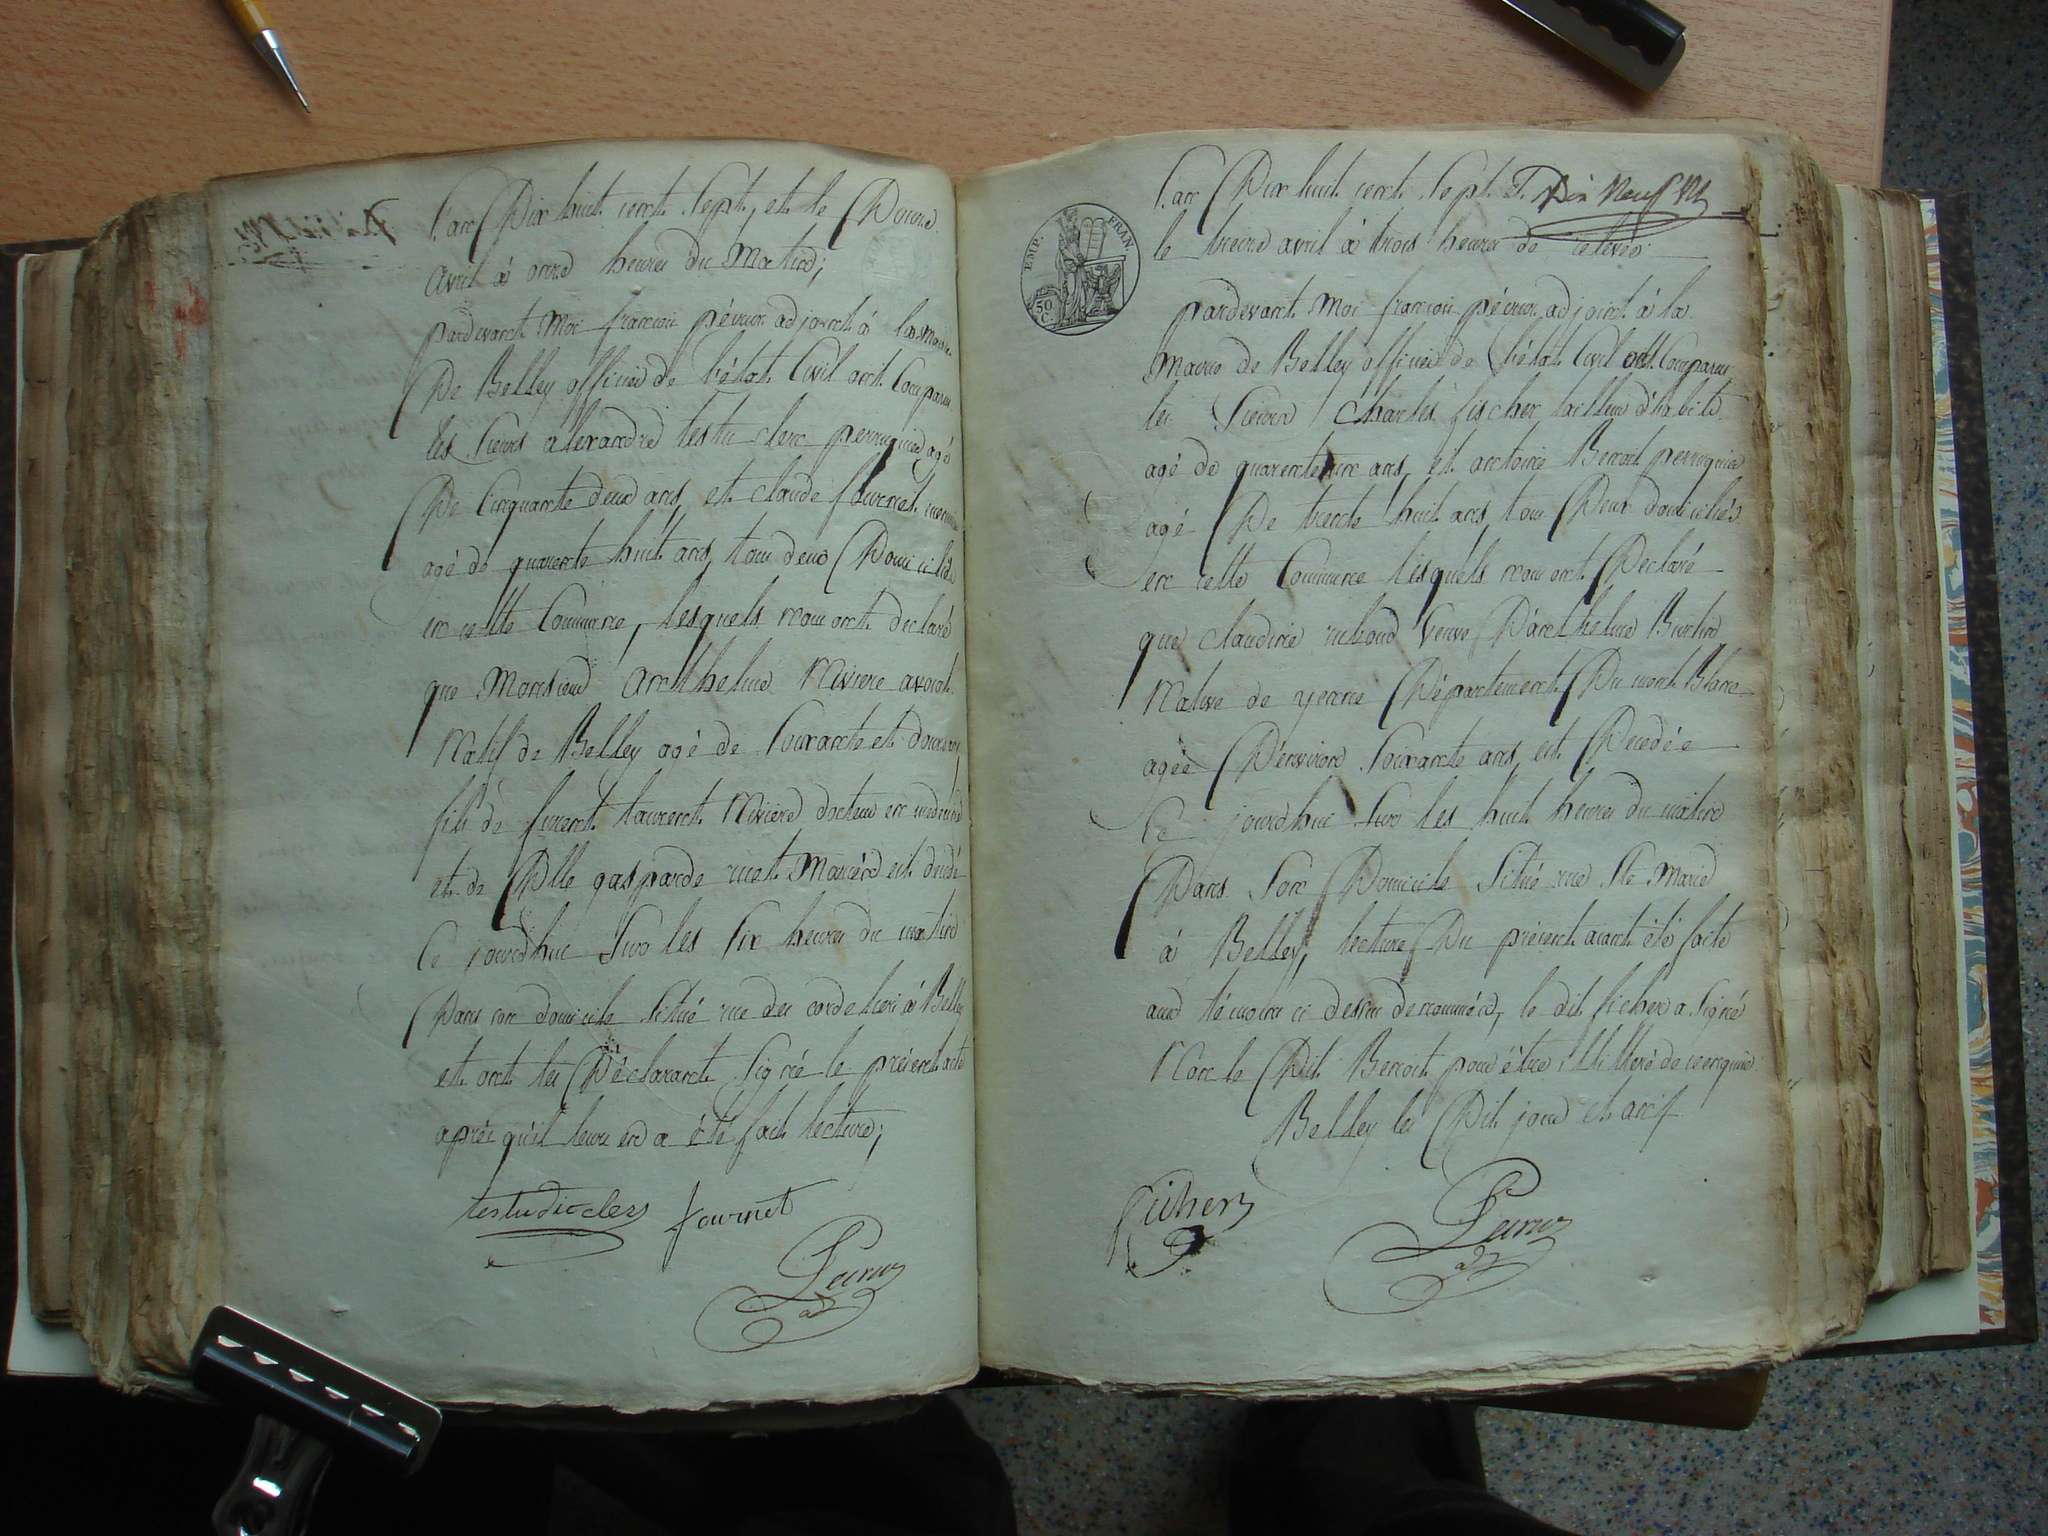 l'an Dix huit cent Sept, et le Douze
avril à onze heures du Matin;
pardevant Moi francois péruz adjoint à la Mairie
De Belley officier de l'état Civil ont Comparu
les Sieurs alexandre testu clerc perruquier agé
De Cinquante deux ans, et claude fournet
agé de quarente huit ans, tous deux Domiciliés
en cette Commune, lesquels nous ont declaré
que Monsieur anthelme Rivière avocat
Natif de Belley agé de Soixante et douze ans
fils de laurent Rivière docteur en medecine
et de Dlle gasparde est décédé
Ce jourdhui Sur les Six heures du matin
Dans son domicile Situé rue des cordeliers à Belley
et ont les Déclarants Signé le présent acte
après qu'il leur en a été fait lecture;
fournet
Peruz
adj
l'an Dix huit cent Sept, et Dix Neuf
EMP. FRAN.
50 C.
le treize avril à trois heures de relevée
pardevant Moi francois péruz adjoint à la
Mairie de Belley officier de l'état Civil ont Comparu
les Sieurs Charles fischer tailleur d'habits
agé de quarente ans, et antoine Benoit perruquier
agé De trente huit ans, tous Deux domiciliés
en cette Commune lesquels nous ont Déclaré
que claudine veuve D'anthelme
Native de yenne Département Du mont Blanc
agée D'environ Soixante ans, est Décedée
Ce jourdhui Sur les huit heures du matin
Dans Son Domicile Situé rue Ste Marie
à Belley, lecture Du présent aiant été faite
aux témoins ci dessus denommés, le dit ficher a Signé
Non le Dit Benoit pour être illitteré de ce enquis
Belley les Dit jour et an
fischer
Peruz
adj